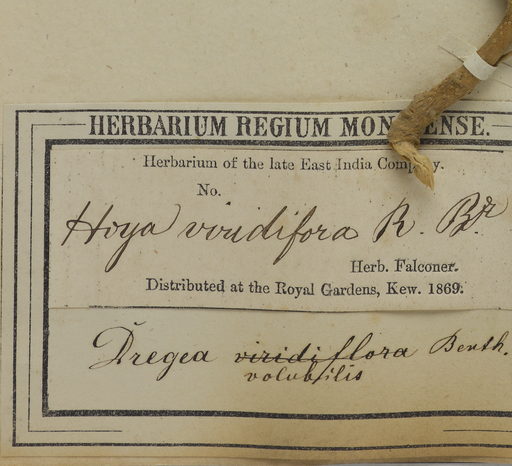 HERBARIUM REGIUM MONACENSE.
Herbarium of the late East India Company.
No.
Hoya viridifora R. Br
Herb. Falconer.
Distributed at the Royal Gardens, Kew. 1869.
Dregea viridiflora Benth.
volubilis